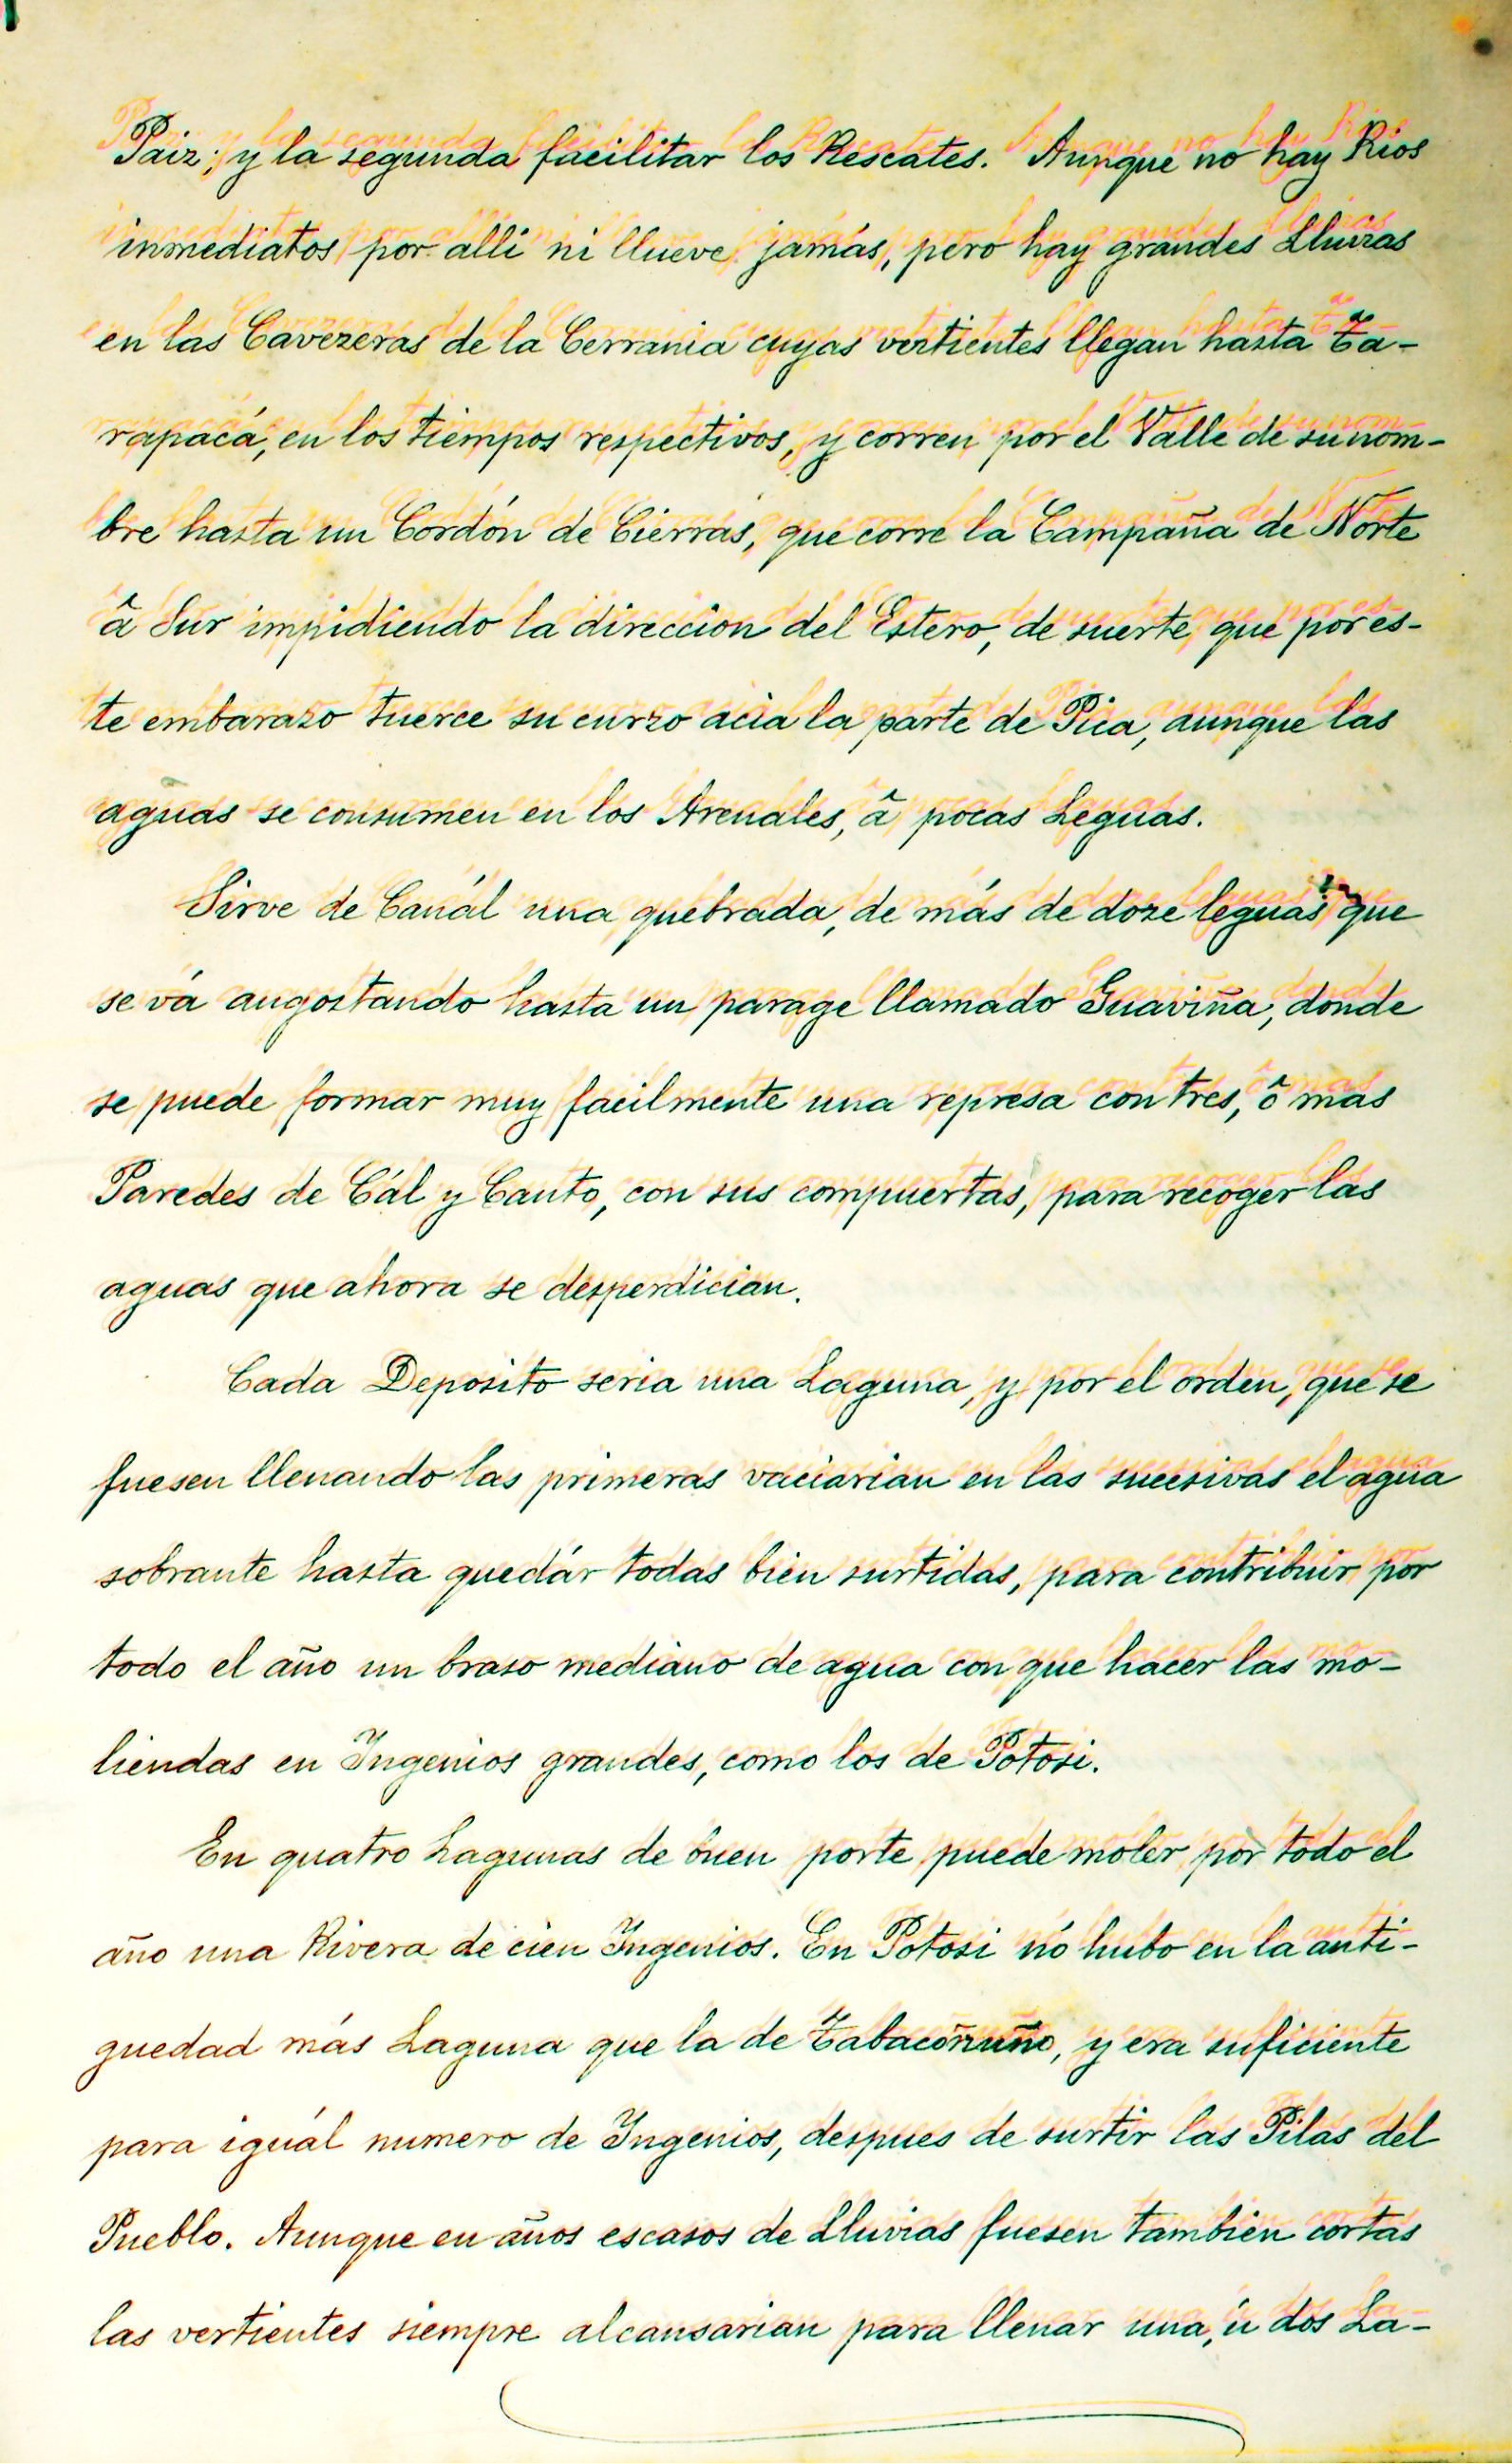 Paiz; y la segunda facilitar los Rescates. Aunque no hay Rios
inmediatos por alli ni llueve jamás, pero hay grandes Lluvias
en las Cavezeras de la Cerrania cuyas vertientes llegan hasta Ta-
rapacá, en los tiempos respectivos, y corren por el Valle de su nom-
bre hasta un Cordón de Cierras, que corre la Campaña de Norte
â Sur impidiendo la direccion del Estero, de suerte, que por es-
te embarazo tuerce su curzo acia la parte de Pica, aunque las
aguas se consumen en los Arenales, â pocas Leguas.
Sirve de Canál una quebrada, de más de doze leguas que
se vá angostando hasta un parage llamado Guaviña, donde
se puede formar muy facilmente una represa con tres, ô mas
Paredes de Cál y Canto, con sus compuertas, para recoger las
aguas que ahora se desperdician.
Cada Deposito seria una Laguna, y por el orden, que se
fuesen llenando las primeras vaciarian en las sucesivas el agua
sobrante hasta quedár todas bien surtidas, para contribuir por
todo el año un braso mediano de agua con que hacer las mo-
liendas en Ingenios grandes, como los de Potosi.
En quatro Lagunas de buen porte puede moler por todo el
año una Rivera de cien Ingenios. En Potosi nó hubo en la anti-
guedad más Laguna que la de Tabacoñuño, y era suficiente
para iguál numero de Ingenios, despues de surtir las Pilas del
Pueblo. Aunque en años escasos de Lluvias fuesen tambien cortas
las vertientes siempre alcansarian para llenar una, ú dos La-